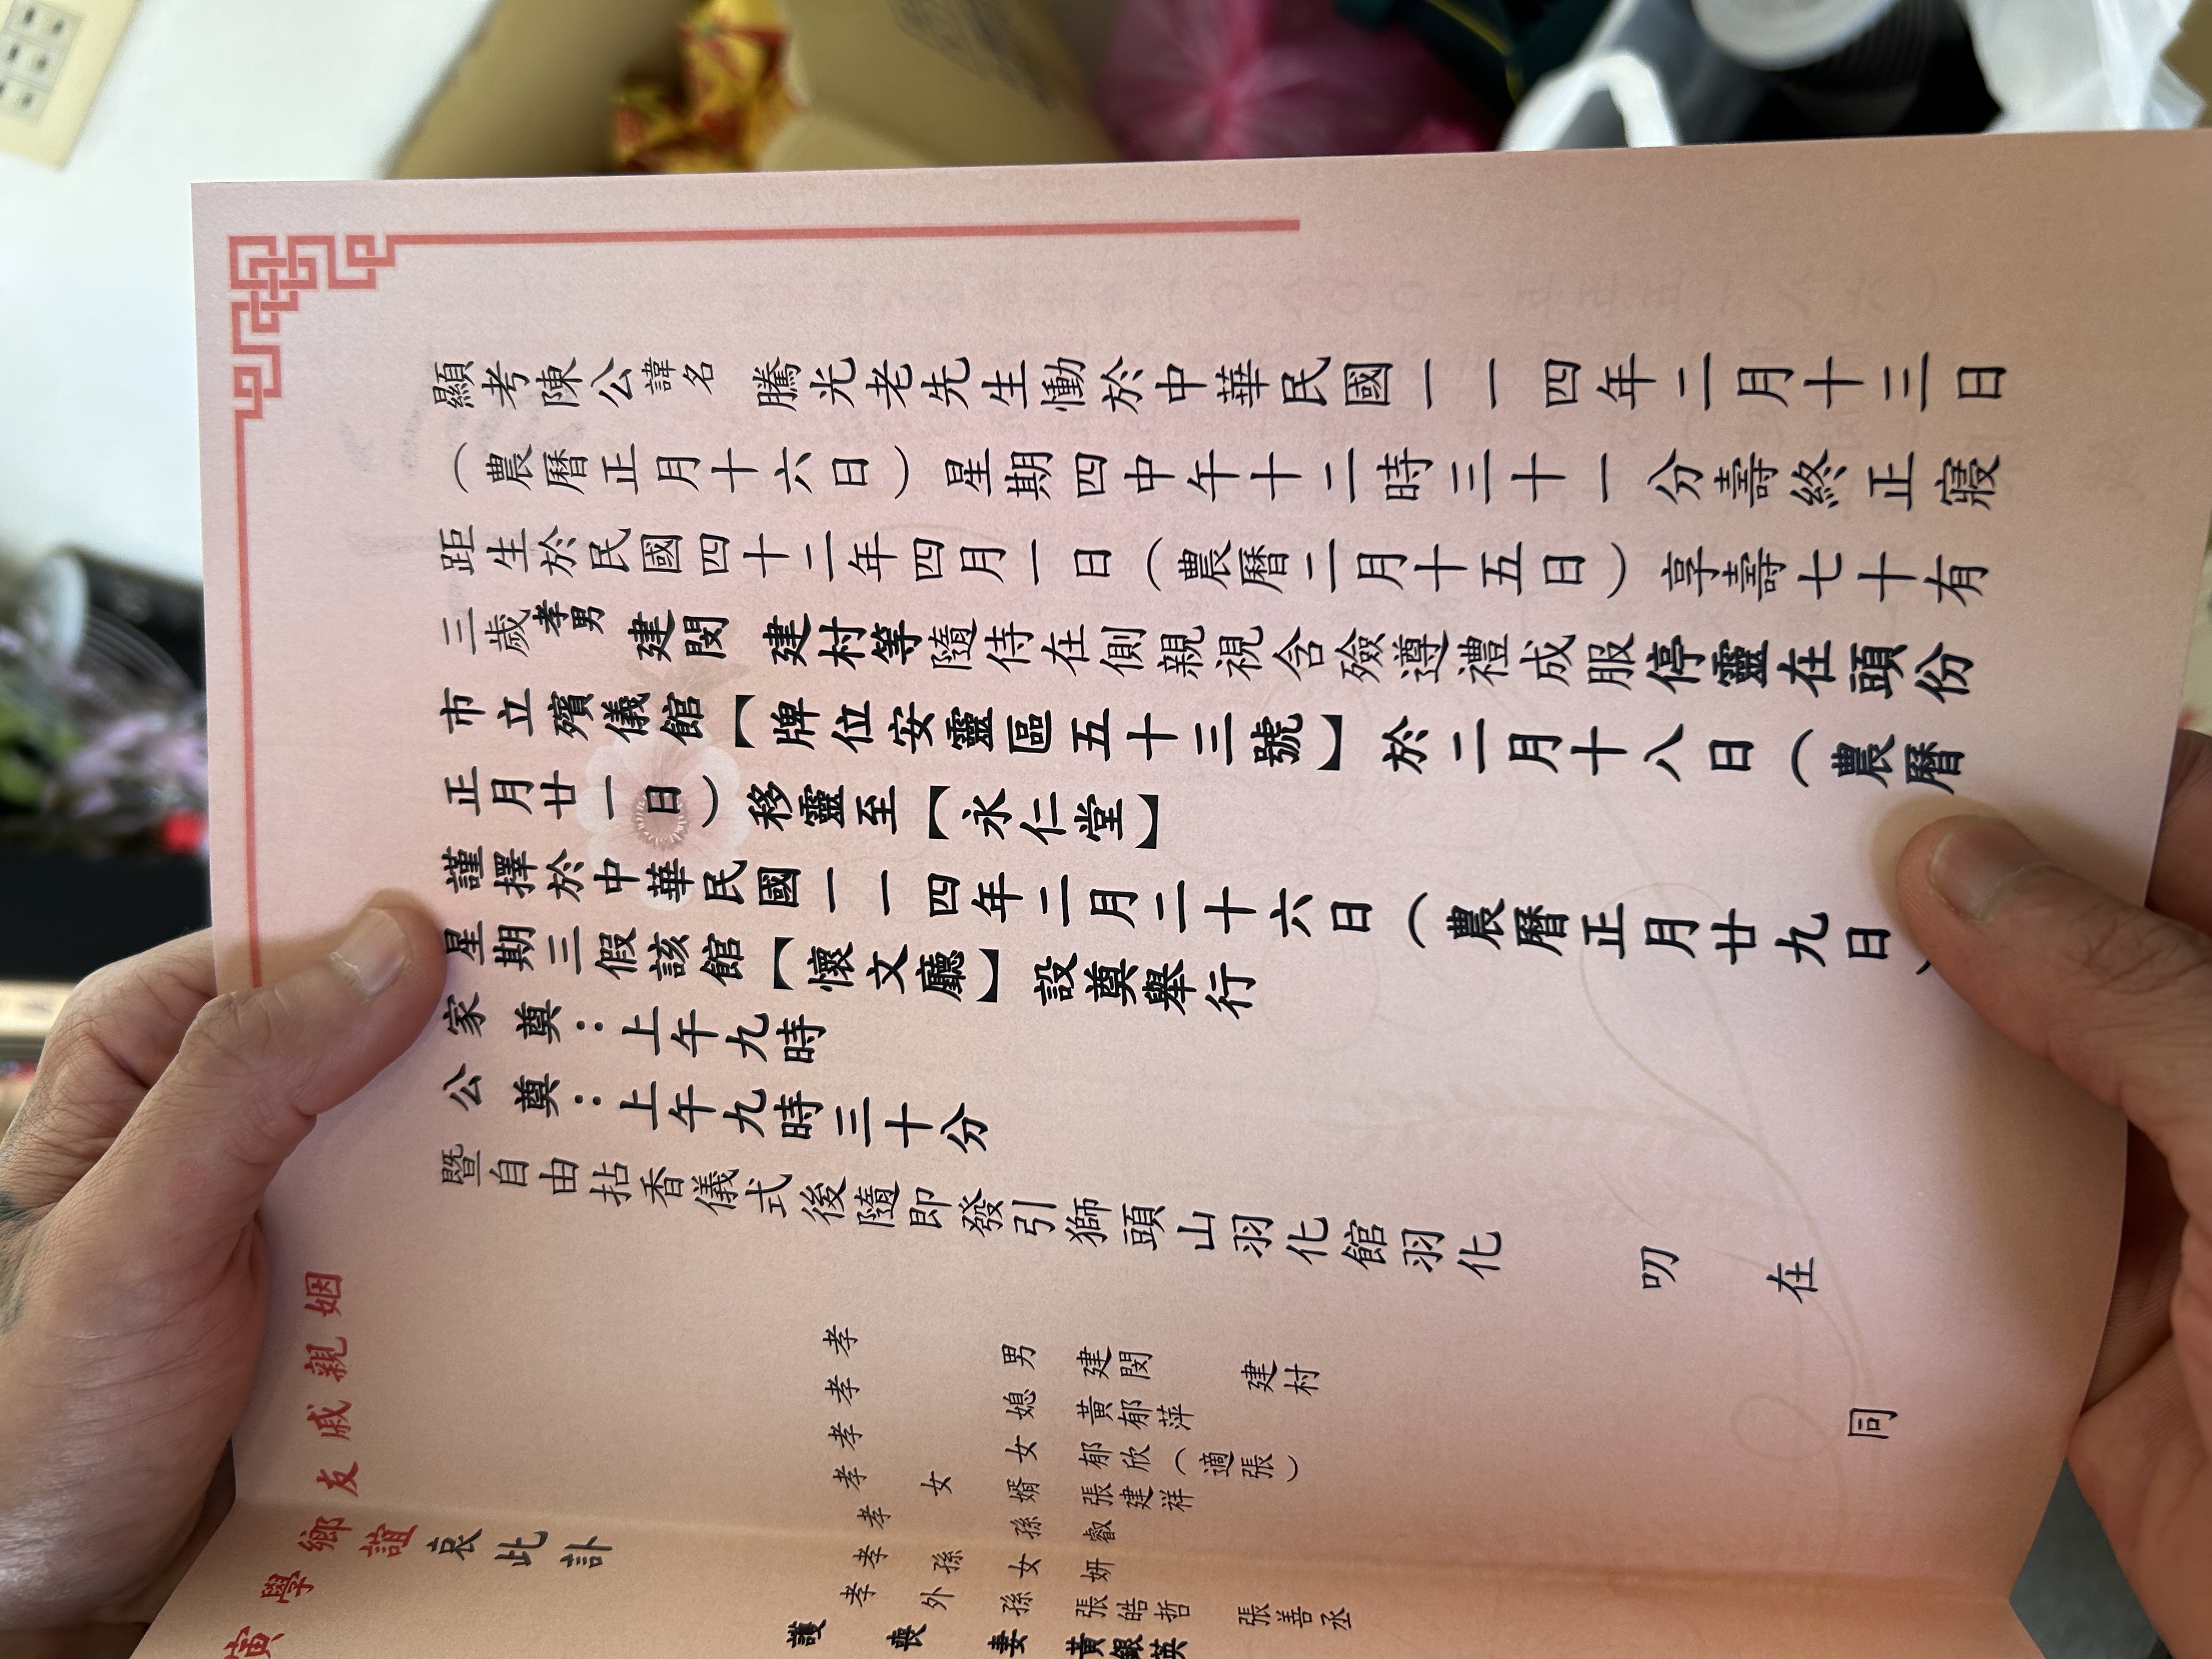 顯考陳公諱名 騰光老先生慟於中華民國一一四年二月十三日
（農曆正月十六日）星期四中午十二時三十一分壽終正寢
距生於民國四十二年四月一日（農曆二月十五日）享壽七十有
三歲孝男 建閔 建村等隨侍在側親視含殮遵禮成服停靈在頭份
市立殯儀館【牌位安靈區五十三號】於二月十八日（農曆
正月廿一日）移靈至【永仁堂】
謹擇於中華民國一一四年二月二十六日（農曆正月廿九日）
星期三假該館【懷文廳】設奠舉行
家 奠：上午九時
公 奠：上午九時三十分
暨自由拈香儀式後隨即發引獅頭山羽化館羽化
叨 在
姻親戚友鄉學寅誼
哀此訃
孝男 建閔 建村
孝媳 黃郁萍
孝女 郁欣（適張）
孝女婿 張建祥
孝孫 叡
孝孫女 妍
孝外孫 張皓哲 張善丞
護喪妻 黃銀英
同